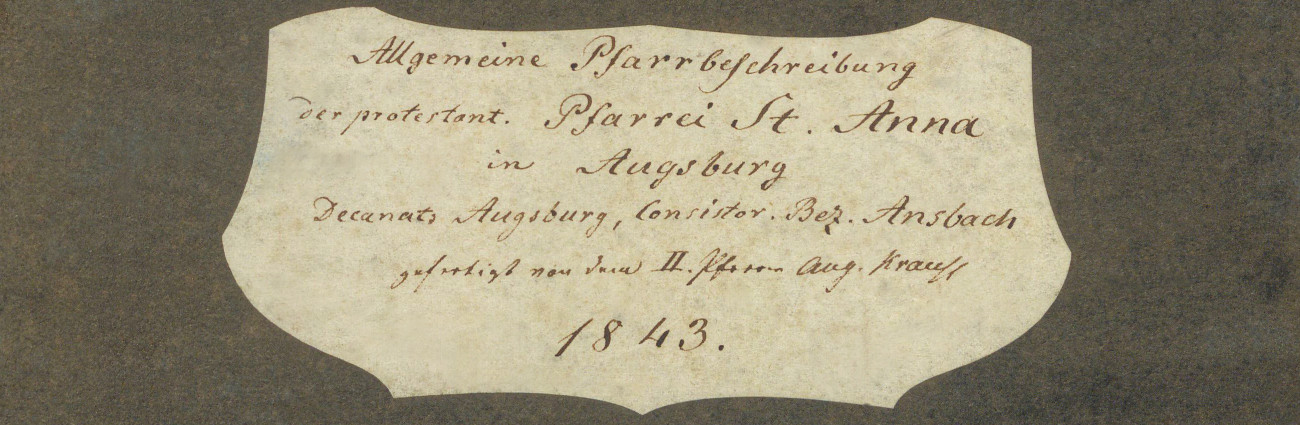 Allgemeine Pfarrbeschreibung
der protestant. Pfarrei St. Anna
in Augsburg
Decanats Augsburg, Consistor. Bez. Ansbach
gefertigt von dem II. Pfarrer Aug. Krauss
1843.